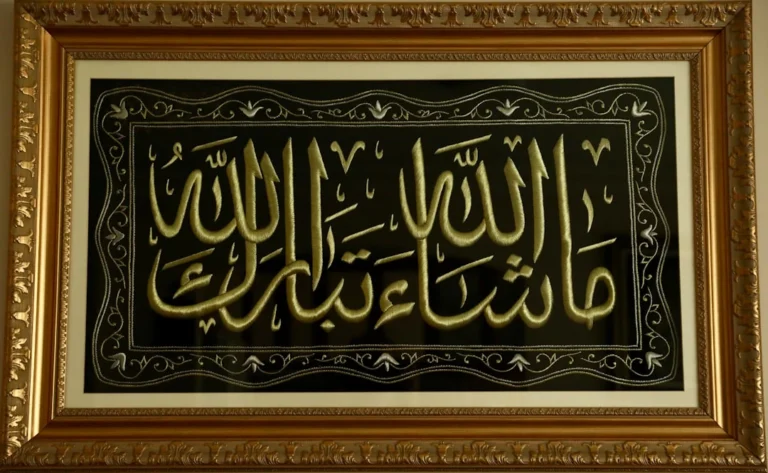 مَا شَاءَ اللّٰه تَبَارَكَ اللّٰهُ